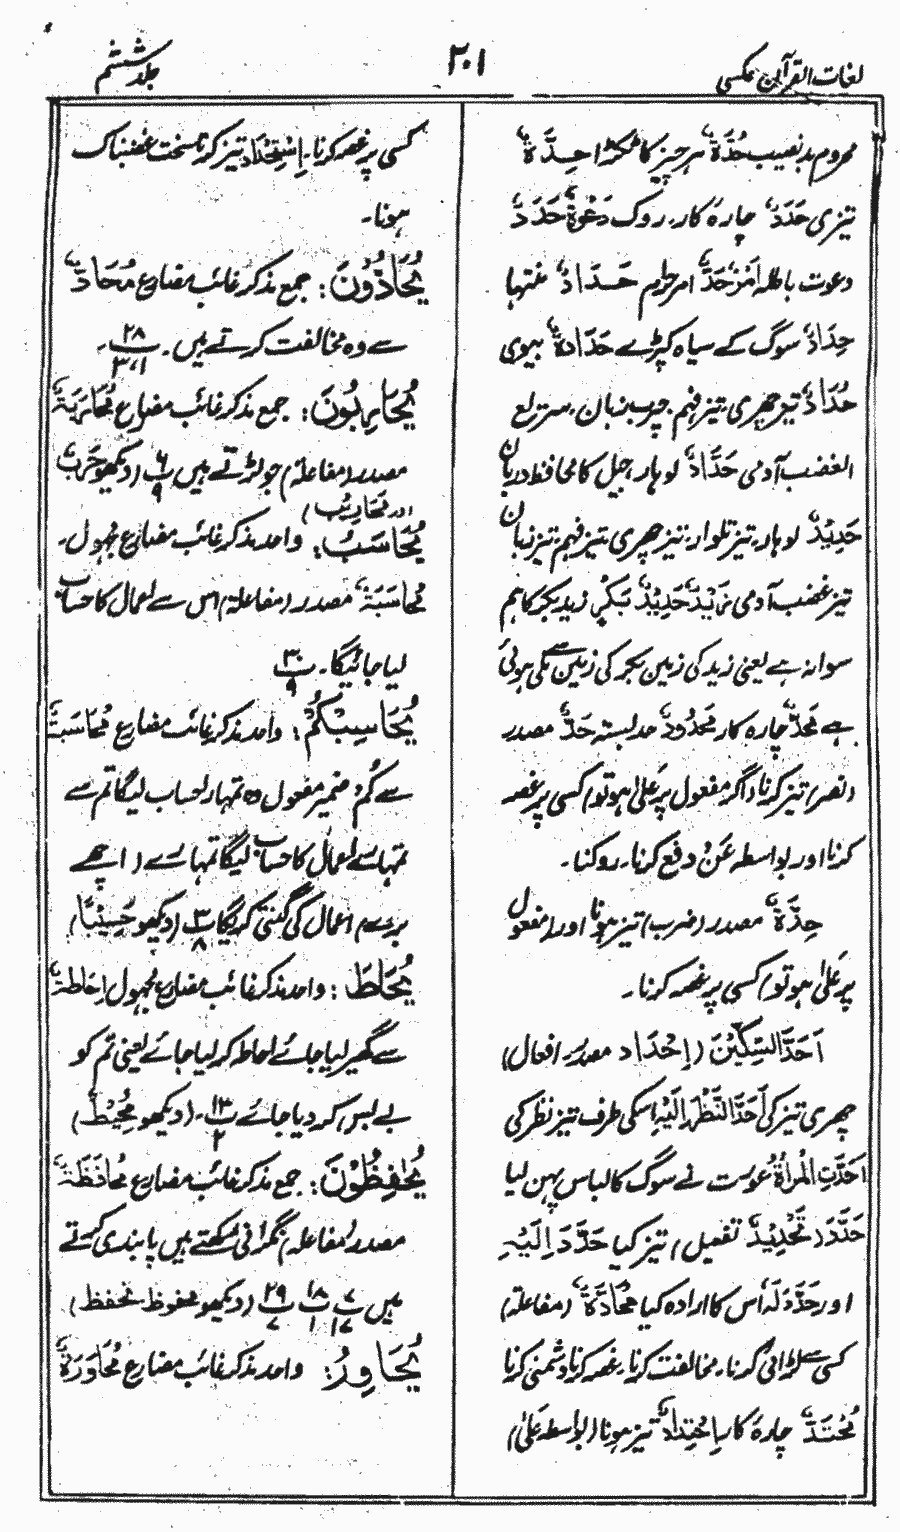 لغات القرآن عکسی
۲۰۱
جلد ششم
محروم بد نصیب حُدَّةٌ ہر چیز کا ٹکڑا حِدَّةٌ
تیزی حَدَدٌ چارہ کار۔ روک دَعْوَةٌ حَدَدٌ
دعوت باطلہ اَمْرٌ حَدَدٌ امر حرام حَدَادٌ منتہا
حِدَادٌ سوگ کے سیاہ کپڑے حَدَادَةٌ بیوی
حُدَادٌ تیز چھری۔ تیز فہم۔ چرب زبان۔ سریع
الغضب آدمی حَدَّادٌ لوہار۔ جیل کا محافظ دربان
حَدِیْدٌ لوہار۔ تیز تلوار۔ تیز چھری تیز فہم۔ تیز زبان
تیز غضب آدمی زَیْدٌ حَدِیْدُ بَکْرٍ زید بکر کا ہم
سوانہ ہے یعنی زید کی زمین بکر کی زمین سے ملی ہوئی
ہے مَحَدٌّ چارہ کار مَحْدُوْدٌ حد بستہ حَدٌّ مصدر
(نصر) تیز کرنا (اگر مفعول پر عَلیٰ ہو تو) کسی پر غصہ
کرنا اور بواسطہ عَنْ دفع کرنا۔ روکنا۔
حِدَّةٌ مصدر (ضرب) تیز ہونا اور (مفعول
پر عَلیٰ ہو تو) کسی پر غصہ کرنا۔
اَحَدَّ السِّکِّیْنَ (اِحْدَاد مصدر۔ افعال)
چھری تیز کی اَحَدَّ النَّظَرَ اِلَیْہِ اسکی طرف تیز نظر کی
اَحَدَّتِ الْمَرْأَةُ عورت نے سوگ کا لباس پہن لیا
حَدَّدَ (تَحْدِیْدٌ تفعیل) تیز کیا حَدَّدَ اِلَیْہِ
اور حَدَّدَ لَہٗ اس کا ارادہ کیا مُحَادَّةٌ (مفاعلۃ)
کسی سے لڑائی کرنا۔ مخالفت کرنا۔ غصہ کرنا دشمنی کرنا
مُحْتَدٌّ چارہ کار اِحْتِدَادٌ تیز ہونا (بواسطہ عَلیٰ)
کسی پر غصہ کرنا۔ اِسْتِحْدَادٌ تیز کرنا سخت غضبناک
ہونا۔
یُحَادُّوْنَ: جمع مذکر غائب مضارع مُحَادَّةٌ
سے وہ مخالفت کرتے ہیں۔ ۲۸ / ۱، ۳
یُحَارِبُوْنَ: جمع مذکر غائب مضارع مُحَارَبَةٌ
مصدر (مفاعلۃ) جو لڑتے ہیں ۶ / ۹ (دیکھو حَرْبٌ
اور مَحَارِیْب)
یُحَاسَبُ: واحد مذکر غائب مضارع مجہول۔
مُحَاسَبَةٌ مصدر (مفاعلۃ) اس سے اعمال کا حساب
لیا جائیگا۔ ۳۰ / ۹
یُحَاسِبْکُمْ: واحد مذکر غائب مضارع مُحَاسَبَةٌ
سے کُمْ ضمیر مفعول وہ تمہارا حساب لیگا تم سے
تمہارے اعمال کا حساب لیگا تمہارے (اچھے
برے) اعمال کی گنتی کریگا ۳ / ۸ (دیکھو حَسِیْبًا)
یُحَاطَ: واحد مذکر غائب مضارع مجہول اِحَاطَةٌ
سے گھیر لیا جائے احاطہ کر لیا جائے یعنی تم کو
بے بس کر دیا جائے ۱۳ / ۲۔ (دیکھو مُحِیْطٌ)
یُحٰفِظُوْنَ: جمع مذکر غائب مضارع مُحَافَظَةٌ
مصدر (مفاعلۃ) نگرانی رکھتے ہیں پابندی کرتے
ہیں ۷ / ۱۷ ۱۸ / ۱ ۲۹ / ۷ (دیکھو محفوظ۔ تحفظ)
یُحَاوِرُ: واحد مذکر غائب مضارع مُحَاوَرَةٌ